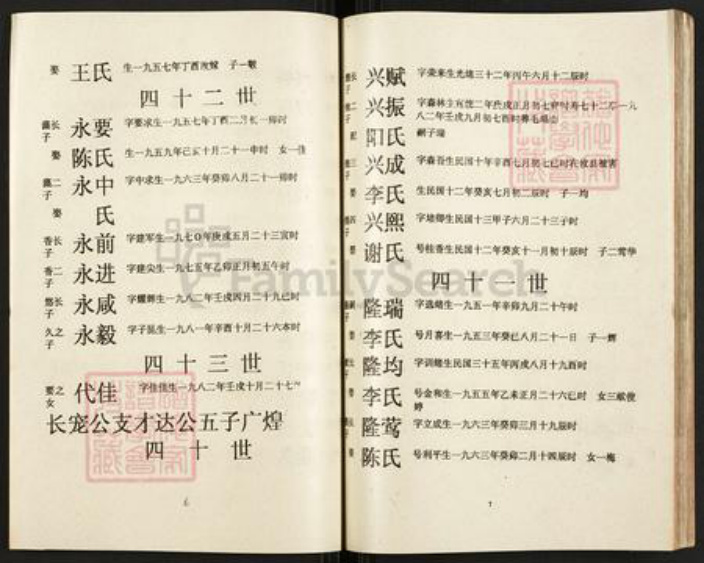 娶 王氏 生一九五七年丁酉改嫁 子一
四十二世
长子 永要 字要求生一九五七年丁酉二月初一卯时
娶 陈氏 生一九五九年己亥十月二十一申时 女一佳
二子 永中 字中求生一九六三年癸卯八月二十一卯时
娶 氏
香长子 永前 字建军生一九七0年庚戌五月二十三寅时
香二子 永进 字建尖生一九七五年乙卯正月初五午时
悠长子 永咸 字耀辉生一九八二年壬戌四月二十九巳时
久之子 永毅 字子昆生一九八一年辛酉十月二十六本时
四十三世
要之女 代佳 字佳佳生一九八二年壬戌十月二十七
长宠公支才达公五子广煌
四十世
6
长子 兴赋 字荣来生光绪三十二年丙午六月十二辰时
二子 兴振 字森林生宣统二年庚戌正月初七寅时寿七十二 一九
八二年壬戌九月初七酉时葬毛塌
配 阳氏 嗣子瑞
三子 兴成 字森吾生民国十年辛酉七月初七巳时在攸县被害
娶 李氏 生民国十二年癸亥七月初二辰时 子一均
四子 兴熙 字地卿生民国十三甲子六月二十三子时
娶 谢氏 号桂香生民国十二年癸亥十一月初十辰时 子二莺华
四十一世
隆瑞 字选晴生一九五一年辛卯九月二十午时
娶 李氏 号月喜生一九五三年癸巳八月二十一日 子一辉
隆均 字训晴生民国三十五年丙戌八月十九酉时
娶 李氏 号金和生一九五五年乙未正月二十六巳时 女三献俊
婷
隆莺 字立成生一九六三年癸卯三月十九辰时
娶 陈氏 号利平生一九六三年癸卯二月十四辰时 女一梅
7
FamilySearch